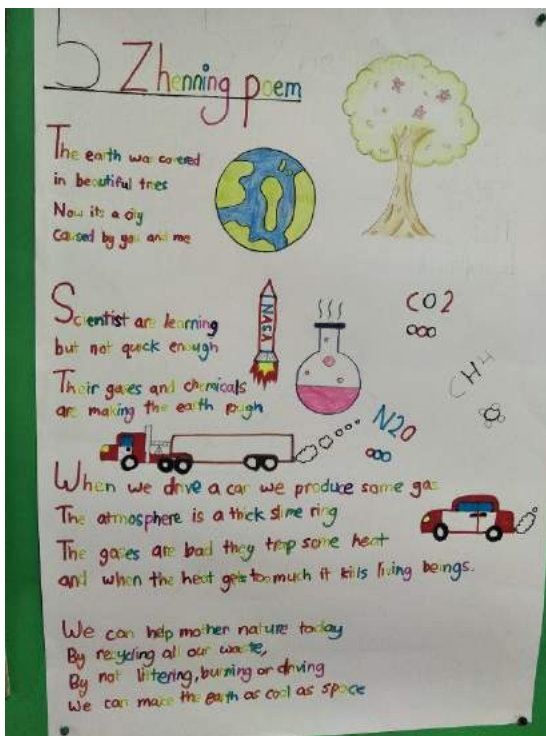 Zhenning poem
The earth was covered
in beautiful trees
Now its a city
Caused by you and me
Scientist are learning
but not quick enough
NASA
CO2
Their gases and chemicals
are making the earth rough
CH4
N2O
When we drive a car we produce some gas
The atmosphere is a thick slime ring
The gases are bad they trap some heat
and when the heat gets too much it kills living beings.
We can help mother nature today
By recycling all our waste,
By not littering, burning or driving
We can make the earth as cool as space